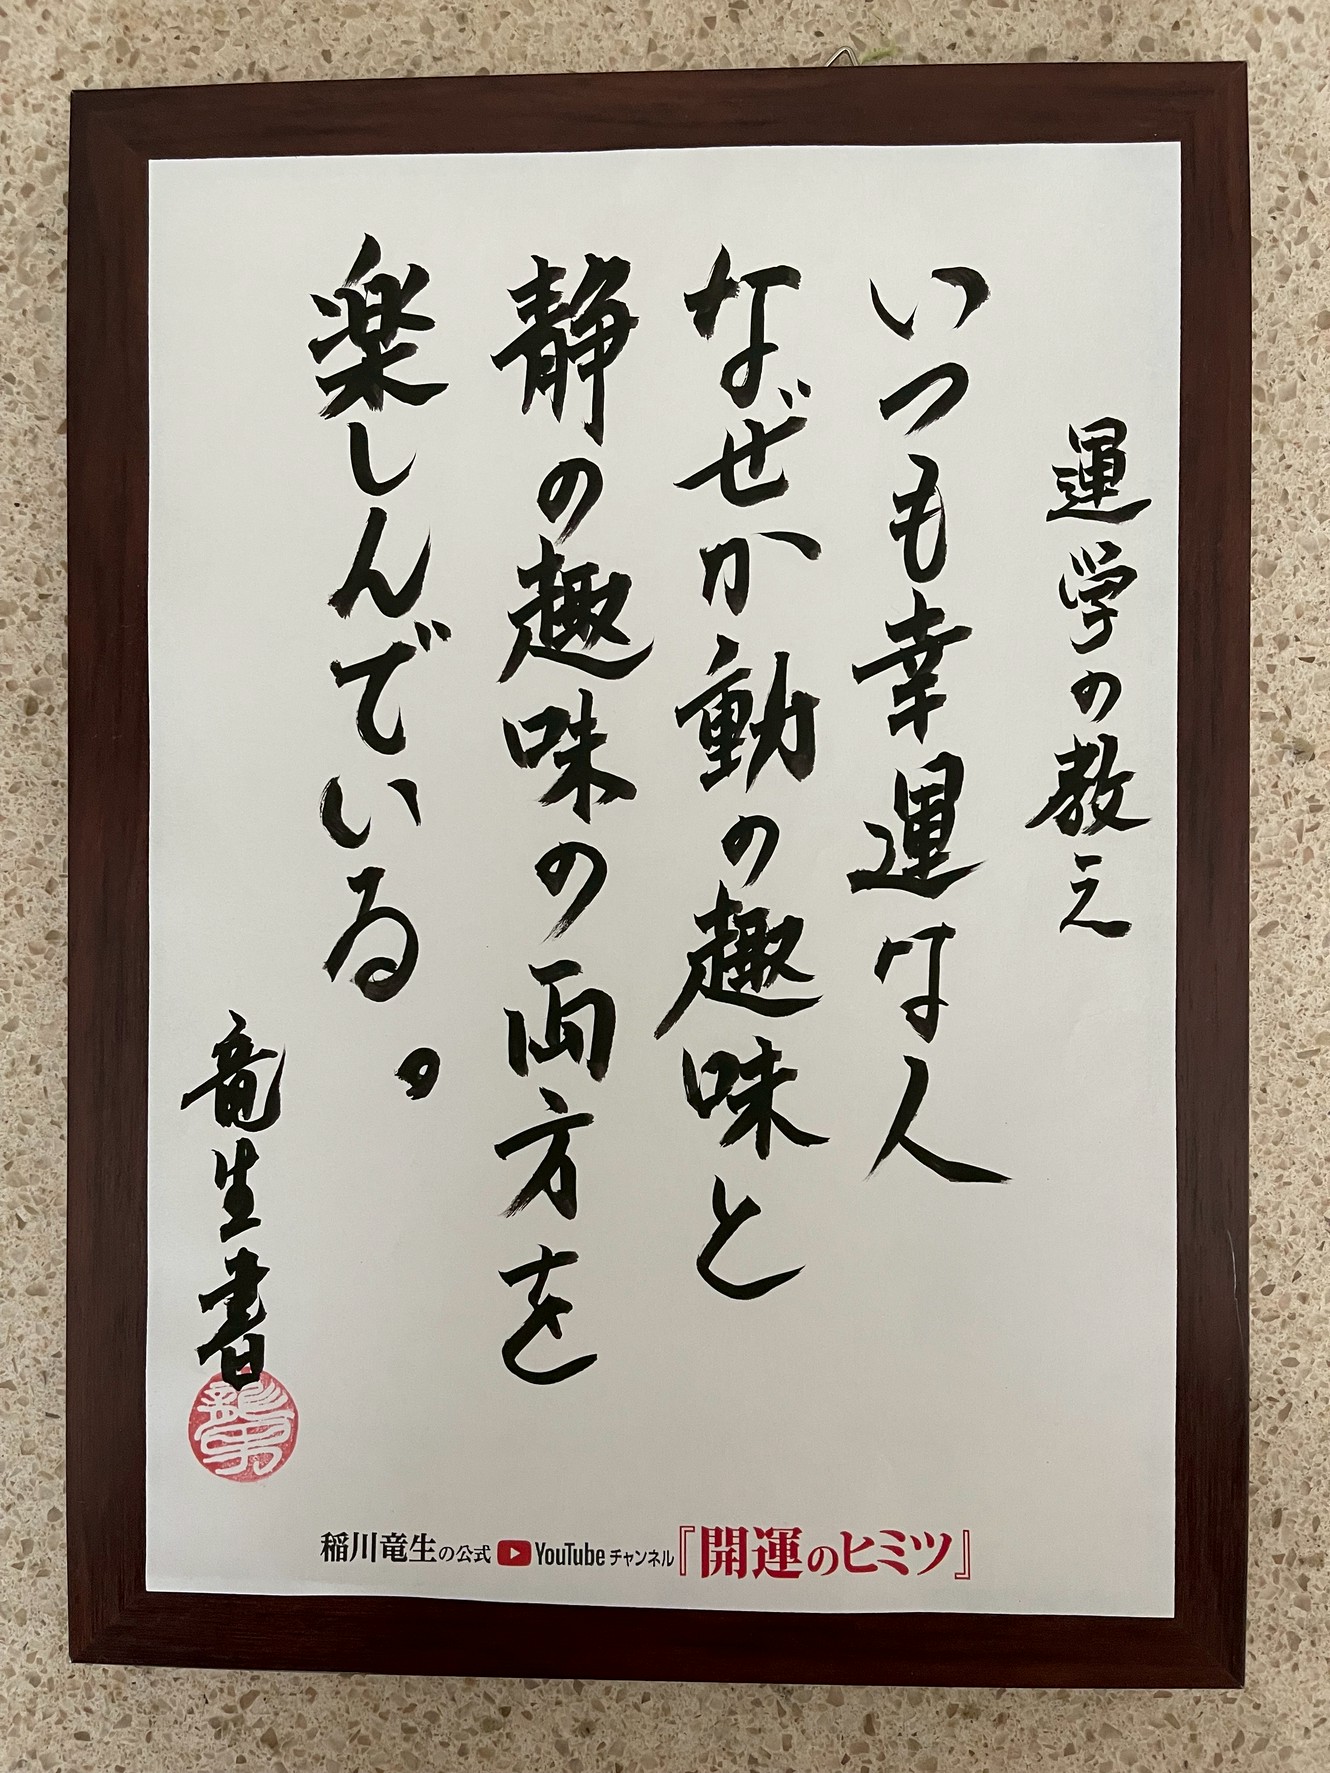 運学の教え
いつも幸運な人
なぜか動の趣味と
静の趣味の両方を
楽しんでいる。
竜生書
稲川竜生の公式 YouTube チャンネル『開運のヒミツ』